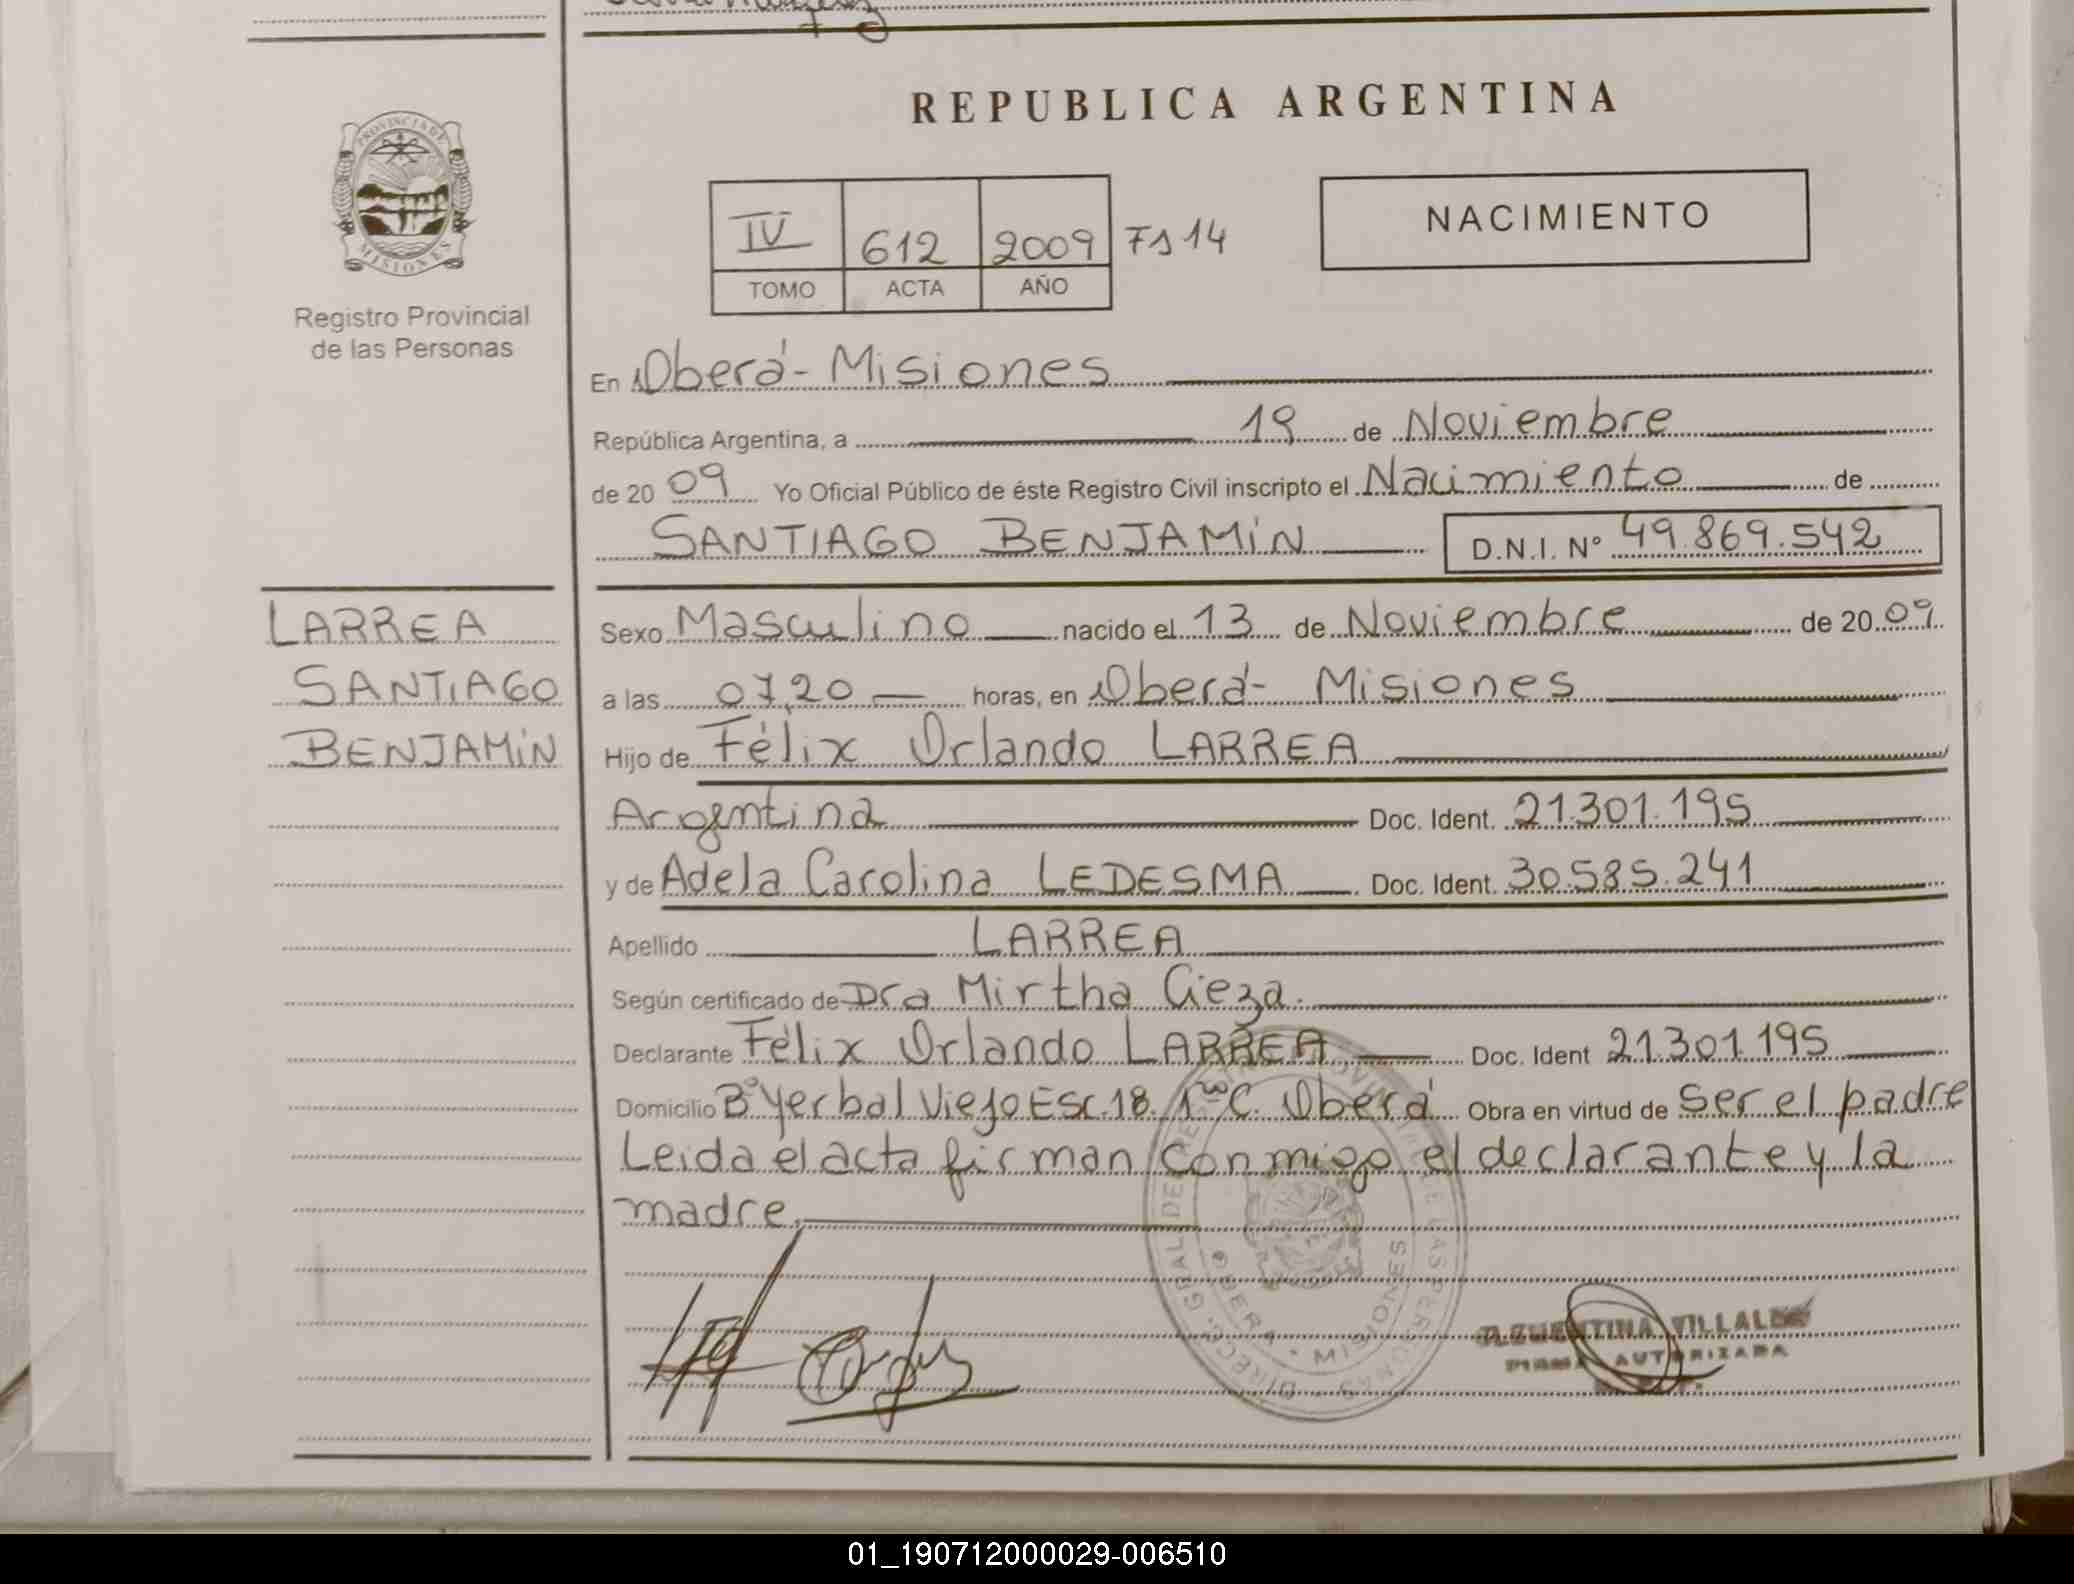 REPUBLICA ARGENTINA
PROVINCIA DE
MISIONES
Registro Provincial
de las Personas
IV 612 2009 Fs 14
TOMO ACTA AÑO
NACIMIENTO
En Oberá - Misiones
República Argentina, a 19 de Noviembre
de 20 09 Yo Oficial Público de éste Registro Civil inscripto el Nacimiento de
SANTIAGO BENJAMÍN D.N.I. Nº 49.869.542
LARREA
SANTIAGO
BENJAMÍN
Sexo Masculino nacido el 13 de Noviembre de 20 09
a las 07,20 horas, en Oberá - Misiones
Hijo de Félix Orlando LARREA
Argentina Doc. Ident. 21.301.195
y de Adela Carolina LEDESMA Doc. Ident. 30.585.241
Apellido LARREA
Según certificado de Dra Mirtha Cieza.
Declarante Félix Orlando LARREA Doc. Ident 21.301.195
Domicilio Bº Yerbal Viejo Esc. 18. C. Oberá Obra en virtud de ser el padre
Leida el acta firman conmigo el declarante y la
madre.
OBERA - MISIONES
VILLALBA
AUTORIZADA
01_190712000029-006510